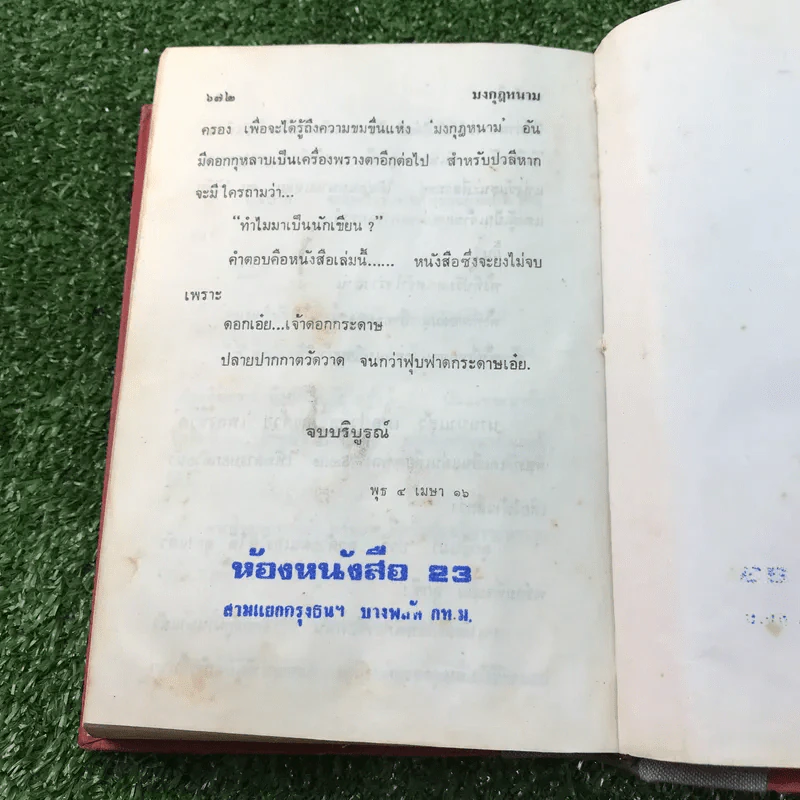 ๖๘๒ มงกุฎหนาม
ครอง เพื่อจะได้รู้ถึงความขมขื่นแห่ง ‘มงกุฎหนาม’ อัน
มีดอกกุหลาบเป็นเครื่องพรางตาอีกต่อไป สำหรับปวลีหาก
จะมีใครถามว่า...
“ทำไมมาเป็นนักเขียน ?”
คำตอบคือหนังสือเล่มนี้...... หนังสือซึ่งจะยงไม่จบ
เพราะ
ดอกเอ๋ย...เจ้าดอกกระดาษ
ปลายปากกาตวัดวาด จนกว่าฟุบฟาดกระดาษเอ๋ย.
จบบริบูรณ์
พุธ ๔ เมษา ๑๖
ห้องหนังสือ 23
สามแยกกรุงธนฯ บางพลัด กท.ม.